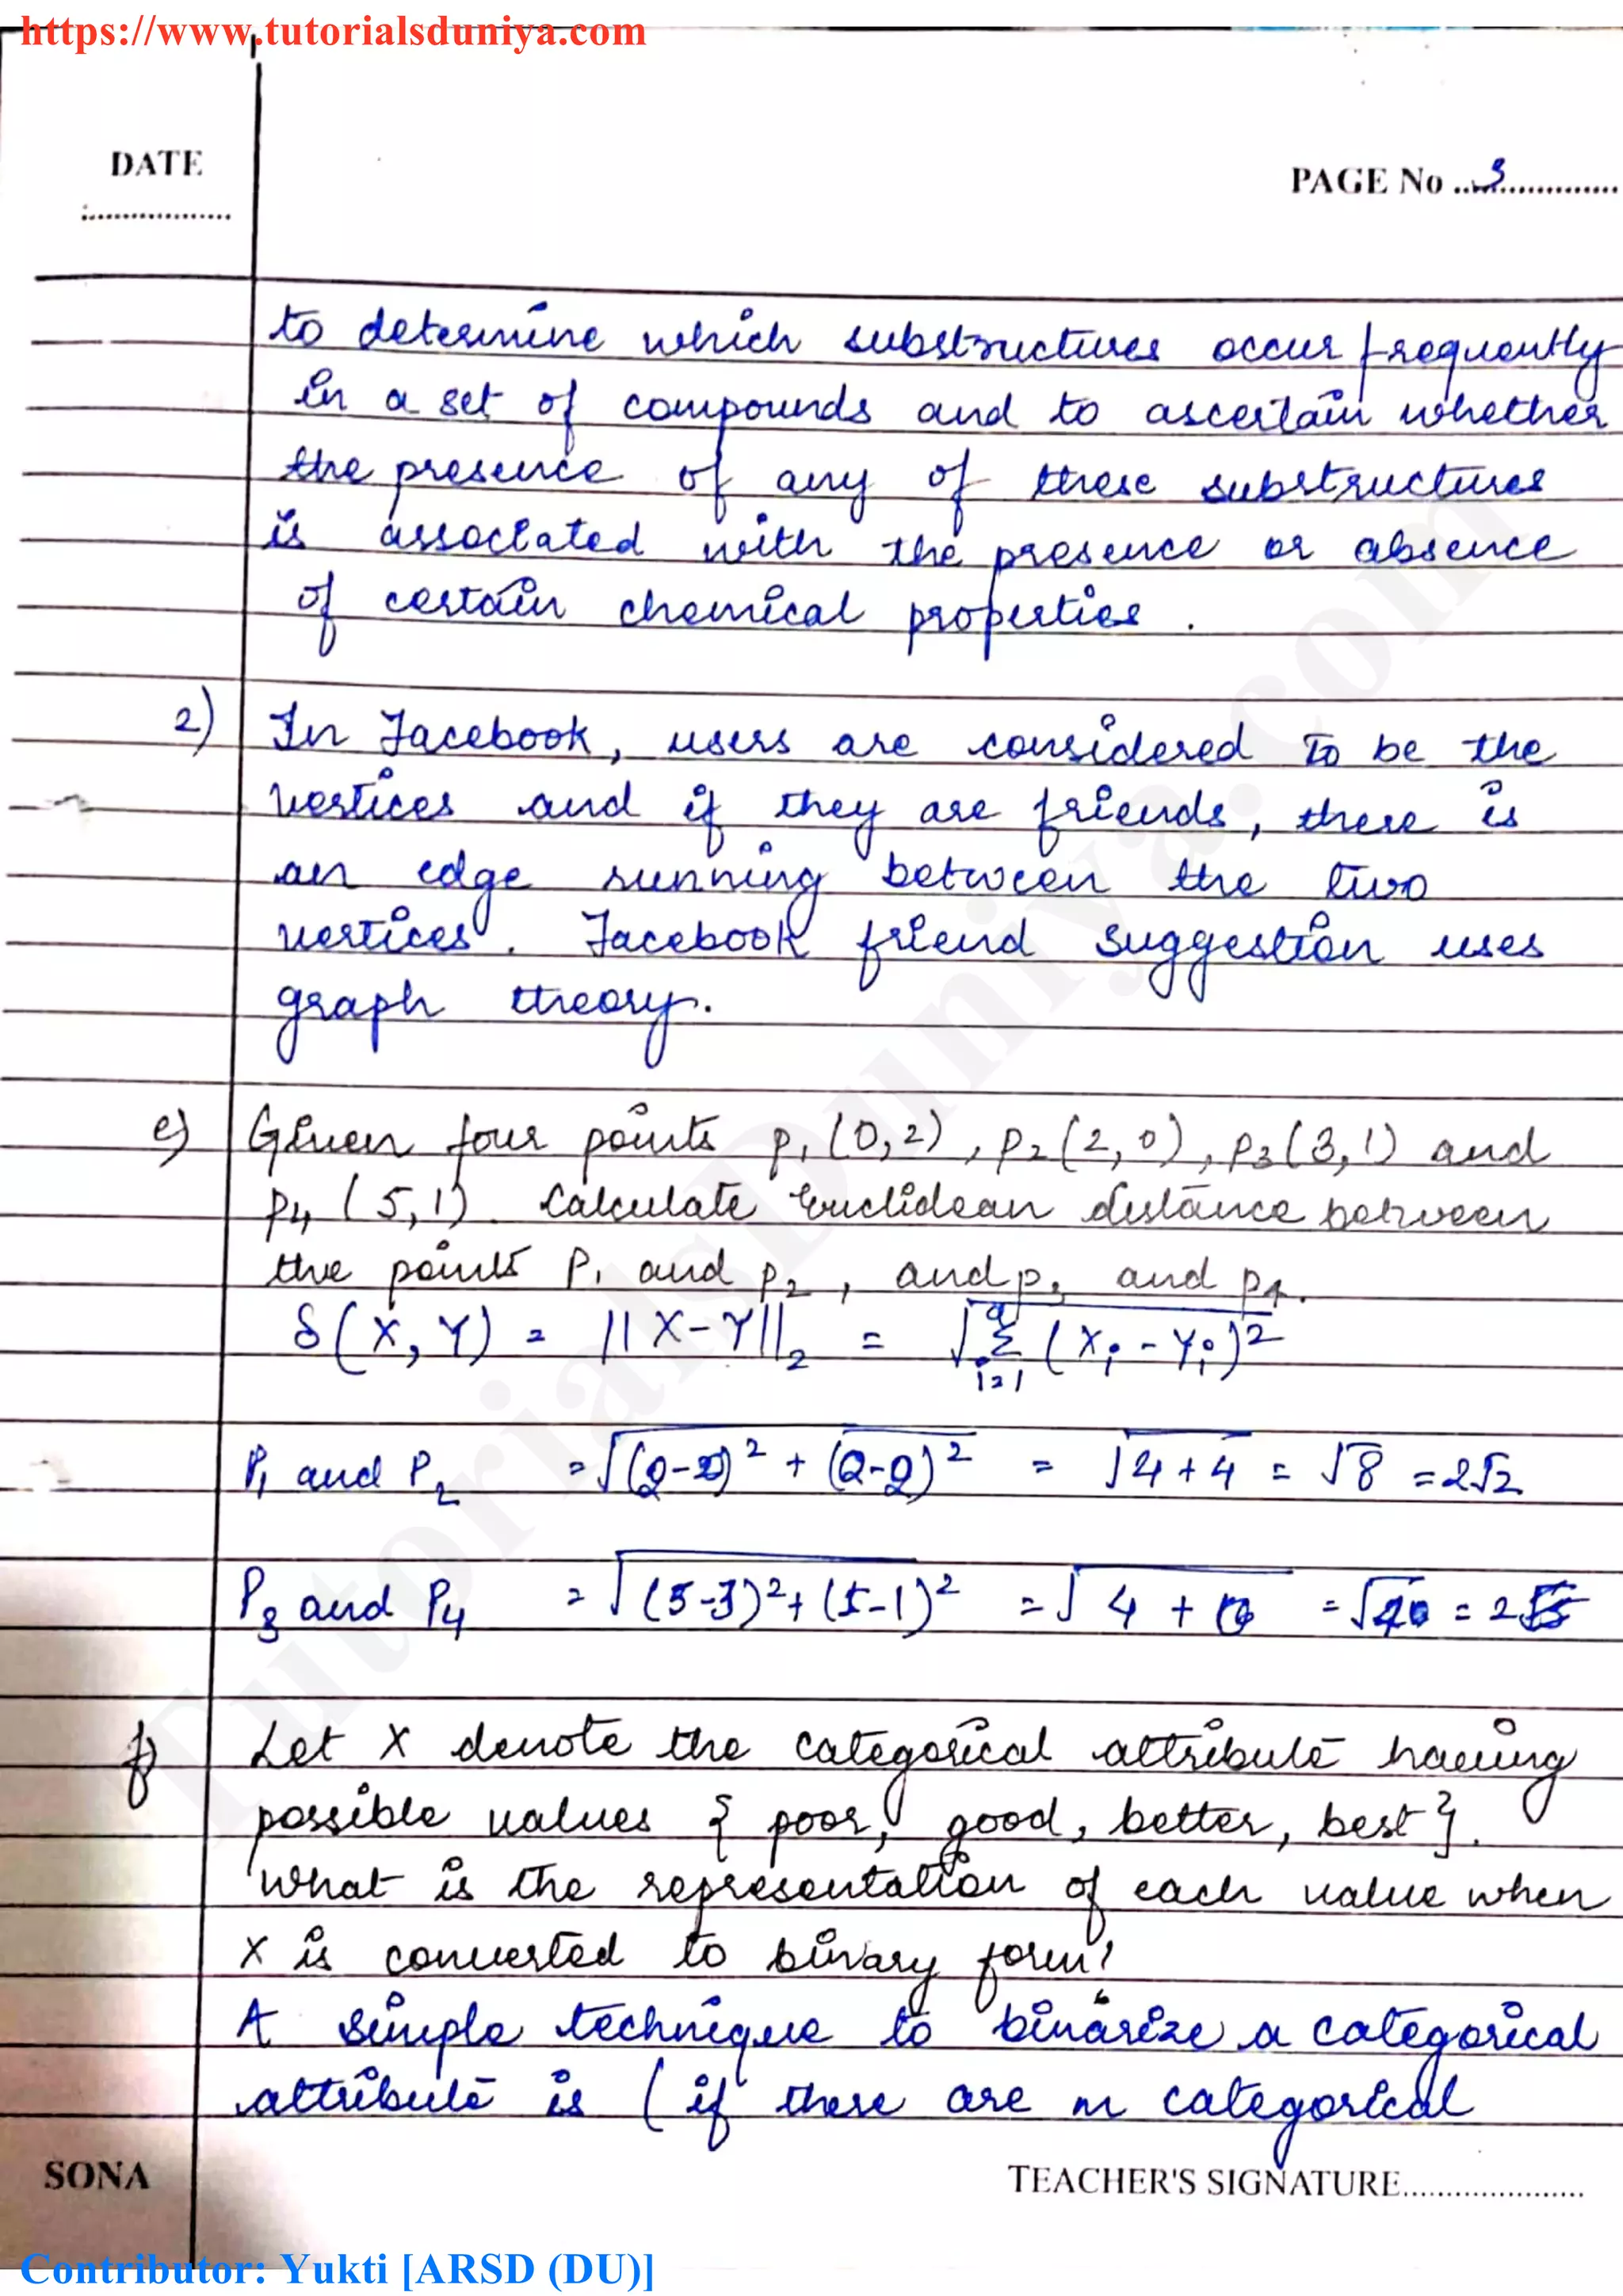 https://www.tutorialsduniya.com
DATE
PAGE No ...3...
to determine which substructures occur frequently
in a set of compounds and to ascertain whether
the presence of any of these substructures
is associated with the presence or absence
of certain chemical properties.
2) In Facebook, users are considered to be the
vertices and if they are friends, there is
an edge running between the two
vertices. Facebook friend suggestion uses
graph theory.
e) Given four points p₁(0,2), p₂(2,0), p₃(3,1) and
p₄(5,1). Calculate Euclidean distance between
the points P₁ and p₂, and p₃ and p₄.
δ(X, Y) = ||X-Y||₂ = √Σ (Xᵢ - Yᵢ)²
i=1
P₁ and P₂ = √(2-0)² + (0-2)² = √4+4 = √8 = 2√2
P₃ and P₄ = √(5-3)² + (1-1)² = √4 + 0 = = 2
f) Let X denote the categorical attribute having
possible values { poor, good, better, best }.
What is the representation of each value when
X is converted to binary form?
A simple technique to binarize a categorical
attribute is (if there are m categorical
SONA
TEACHER'S SIGNATURE......................
Contributor: Yukti [ARSD (DU)]
TutorialsDuniya.com